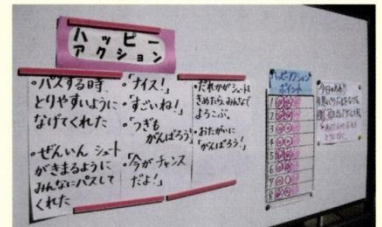 ハッピー
アクション
・パスする時、
とりやすいように
なげてくれた
・ぜんいん シュート
がきまるように
みんなにパスして
くれた
・「ナイス!」
・「すごいね!」
・「つぎも
がんばろう」
・「今がチャンス
だよ!」
・だれかがシュートを
きめたら、みんなで
よろこぶ。
・おたがいに
「がんばろう!」
ハッピーアクション
ポイント
1
2
3
4
5
6
7
8
今日のめあて